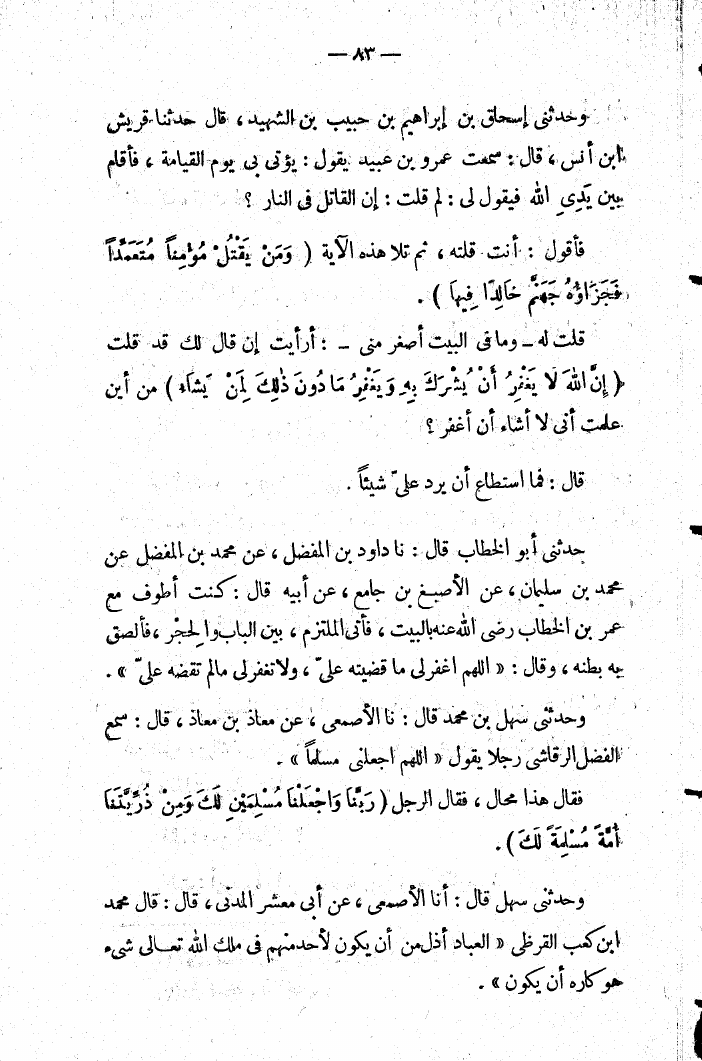 — ٨٣ —
وحدثنى إسحاق بن إبراهيم بن حبيب بن الشهيد ، قال حدثنا قريش
ابن أنس ، قال : سمعت عمرو بن عبيد يقول : يؤتى بى يوم القيامة ، فأقام
بين يَدِىِ الله فيقول لى : لم قلت : إن القاتل فى النار ؟
فأقول : أنت قلته ، ثم تلا هذه الآية ( وَمَنْ يَقْتُلْ مُؤمِناً مُتَعَمِّدًاً
فَجَزَاؤُهُ جَهَنَّمُ خَالِدًا فِيهَا ) .
قلت له ــ وما فى البيت أصغر منى ــ : أرأيت إن قال لك قد قلت
( إِنَّ اللهَ لَا يَغْفِرُ أَنْ يُشْرَكَ بِهِ وَيَغْفِرُ مَا دُونَ ذٰلِكَ لِمَنْ يَشَاءُ ) من أين
علمت أنى لا أشاء أن أغفر ؟
قال : فما استطاع أن يرد علىّ شيئاً .
حدثنى أبو الخطاب قال : نا داود بن المفضل ، عن محمد بن المفضل عن
محمد بن سليمان ، عن الأصبغ بن جامع ، عن أبيه قال : كنت أطوف مع
عمر بن الخطاب رضى الله عنه بالبيت ، فأتى الملتزم ، بين الباب والحِجْر ، فألصق
به بطنه ، وقال : « اللهم اغفر لى ما قضيته علىّ ، ولا تغفر لى مالم تقضه علىّ » .
وحدثنى سهل بن محمد قال : نا الأصمعى ، عن معاذ بن معاذ ، قال : سمع
الفضل الرقاشى رجلا يقول « اللهم اجعلنى مسلماً » .
فقال هذا محال ، فقال الرجل ( رَبَّنَا وَاجْعَلْنَا مُسْلِمَيْنِ لَكَ وَمِنْ ذُرِّيَّتِنَا
أُمَّةً مُسْلِمَةً لَكَ ) .
وحدثنى سهل قال : أنا الأصمعى ، عن أبى معشر المدنى ، قال : قال محمد
ابن كعب القرظى « العباد أذل من أن يكون لأحد منهم فى ملك الله تعالى شىء
هو كاره أن يكون » .